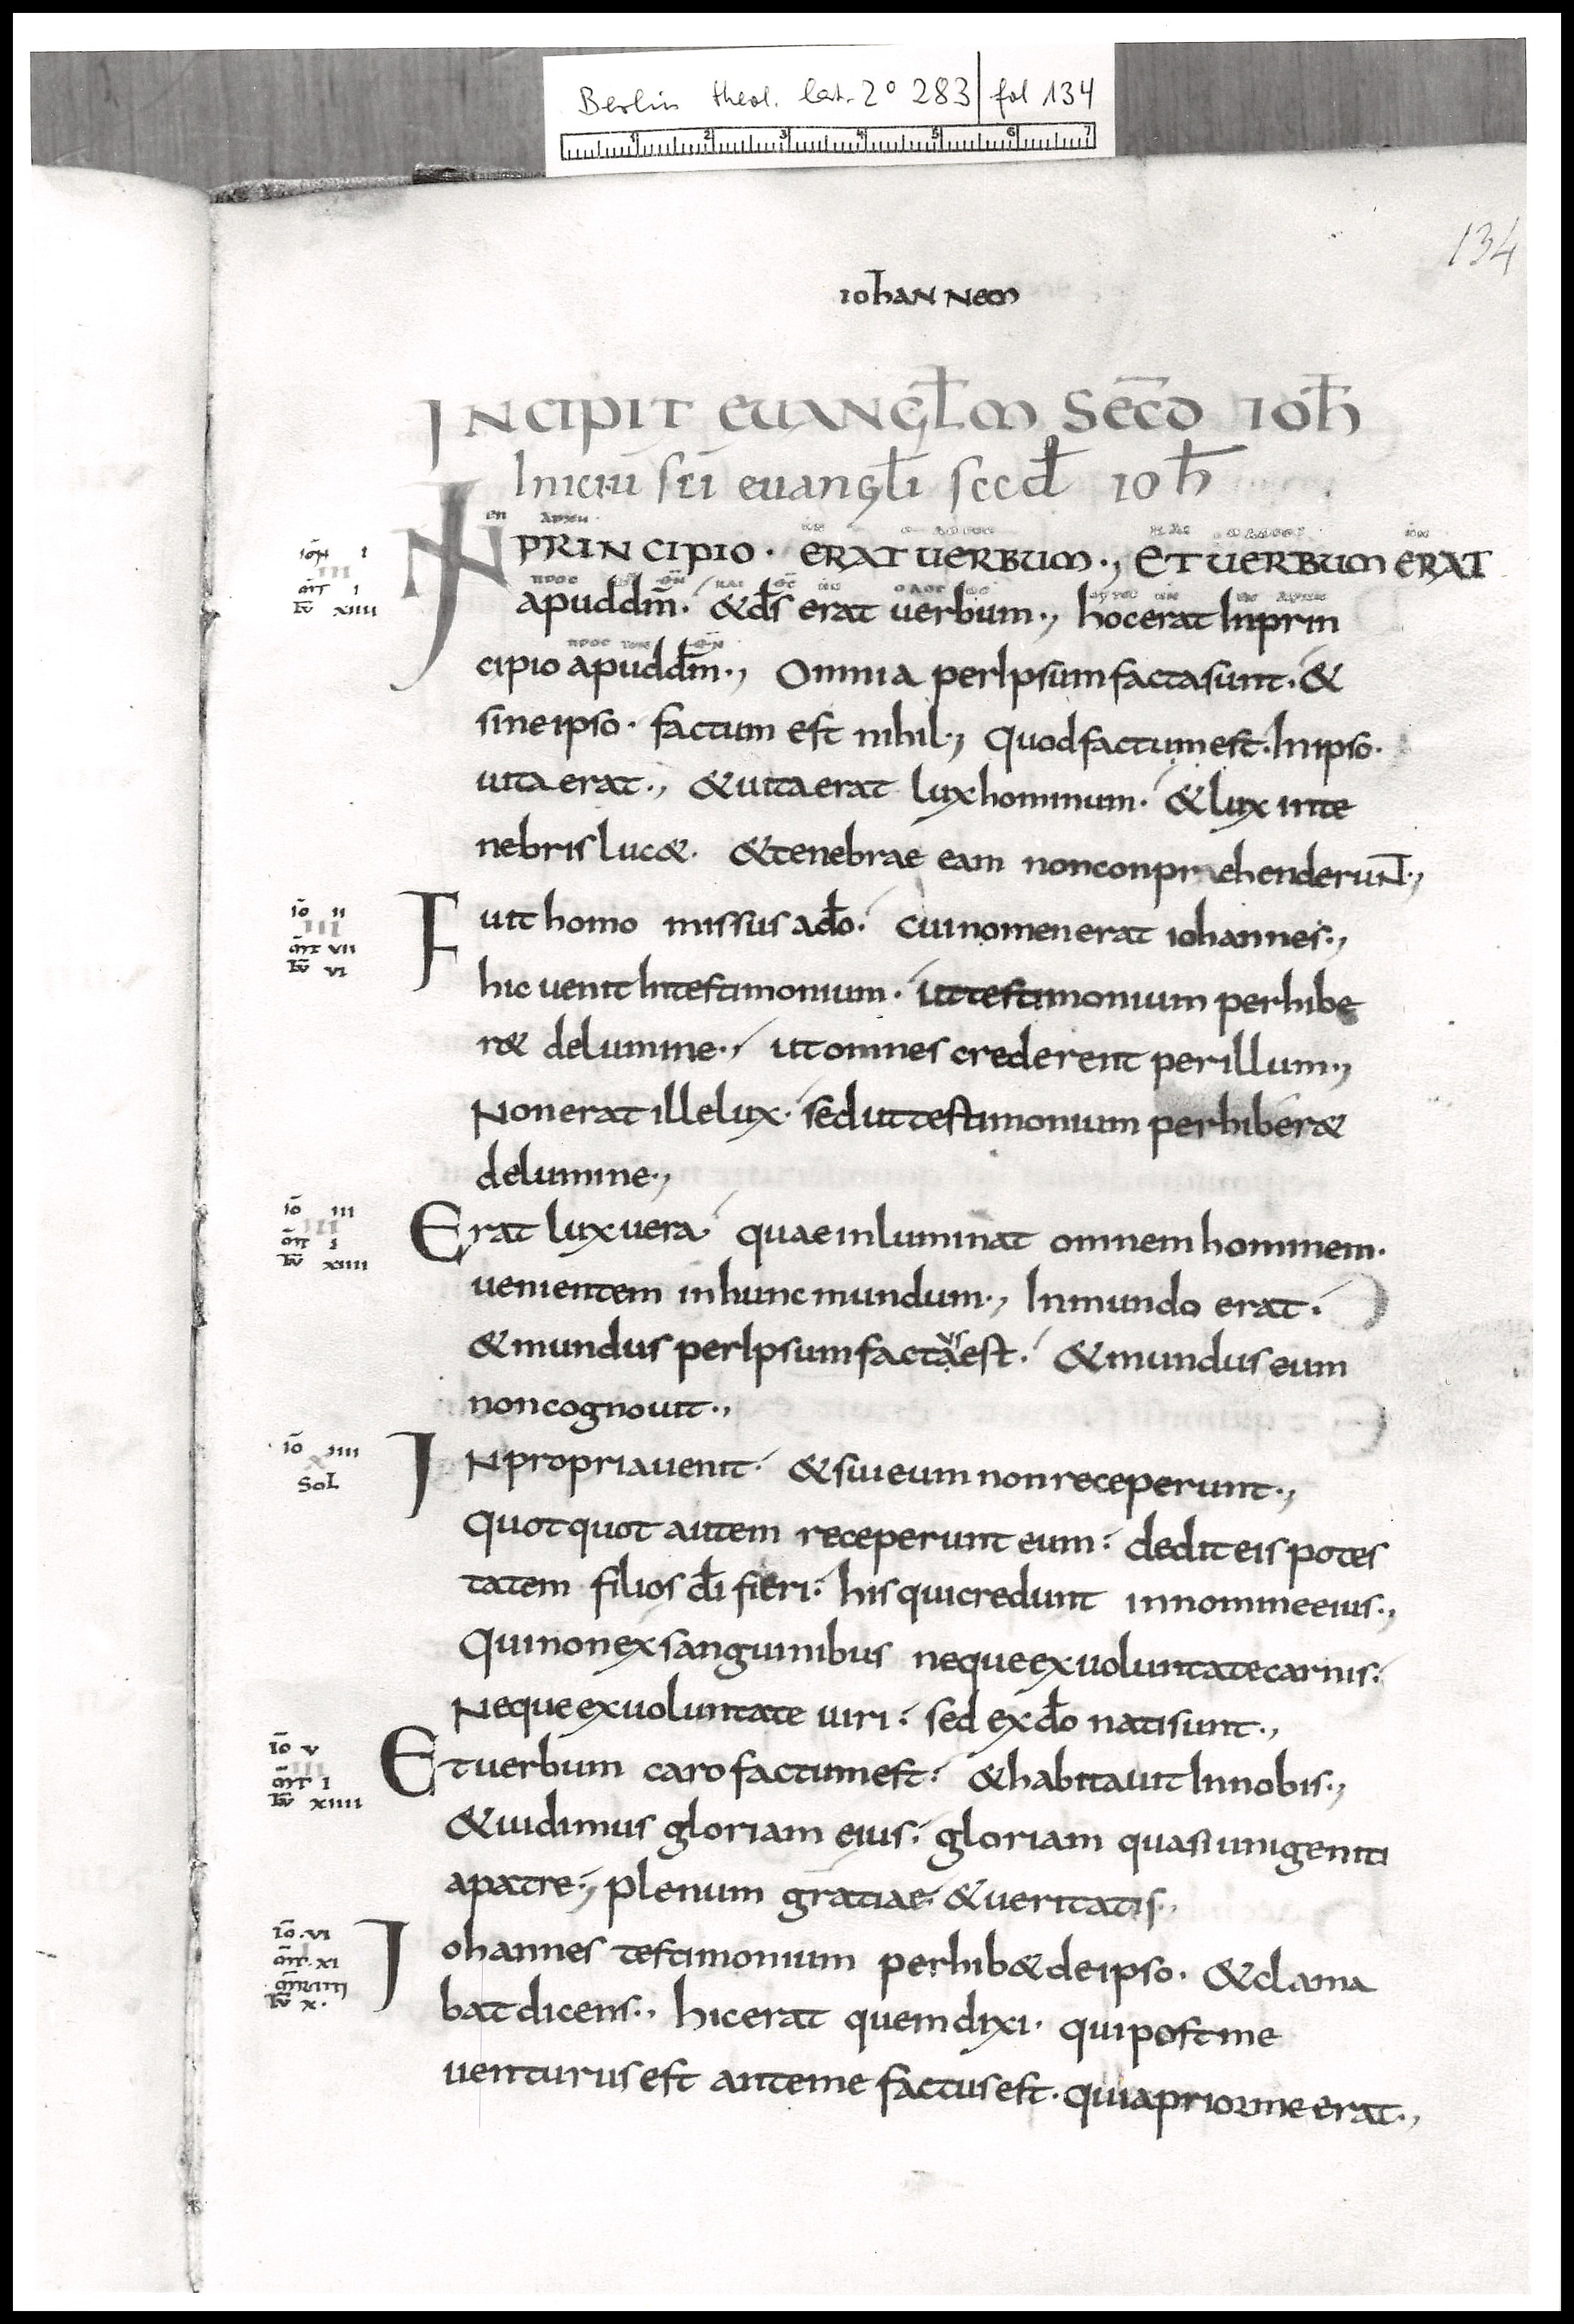 Berlin theol. lat. 2° 283 fol 134
1 2 3 4 5 6 7
134
iohannem
Incipit euangl̄m secd̄ ioh̄
Iniciū sc̄i euangl̄i secd̄ ioh̄
ioh̄ i
III
mт̄ i
lū xiiii
IN PRINCIPIO · ERAT UERBUM ·, ET UERBUM ERAT
apud dm̄ · & ds̄ erat uerbum ·, hoc erat In prin
cipio apud dm̄ ·, Omnia per Ipsum facta sunt · &
sine ipso · factum est nihil ·, quod factum est · In ipso ·
uita erat ·, & uita erat lux hominum · & lux in te
nebris luc& · & tenebrae eam non conpraehenderunt ·,
iō ii
III
mт̄ vii
lū vi
Fuit homo missus a dō · cui nomen erat iohannes ·,
hic uenit In testimonium · ut testimonium perhibe
r& de lumine ·, ut omnes crederent per illum ·,
Non erat ille lux · sed ut testimonium perhiber&
de lumine ·,
iō iii
III
mт̄ i
lū xiiii
Erat lux uera · quae inluminat omnem hominem ·
uenientem in hunc mundum ·, In mundo erat ·
& mundus per Ipsum factaus est · & mundus eum
non cognouit ·,
iō iiii
x
sol
In propria uenit · & sui eum non receperunt ·,
quotquot autem receperunt eum : dedit eis potes
tatem filios dī fieri : his qui credunt in nomine eius ·,
qui non ex sanguinibus neque ex uoluntate carnis :
Neque ex uoluntate uiri : sed ex dō nati sunt ·,
iō v
III
mт̄ i
lū xiiii
Et uerbum caro factum est : & habitauit In nobis ·,
& uidimus gloriam eius : gloriam quasi unigeniti
a patre ·, plenum gratiae : & ueritatis ·,
iō · vi
mт̄ · xi
lū x ·
Iohannes testimonium perhib& de ipso · & clama
bat dicens ·, hic erat quem dixi · qui post me
uenturus est ante me factus est · quia prior me erat ·,